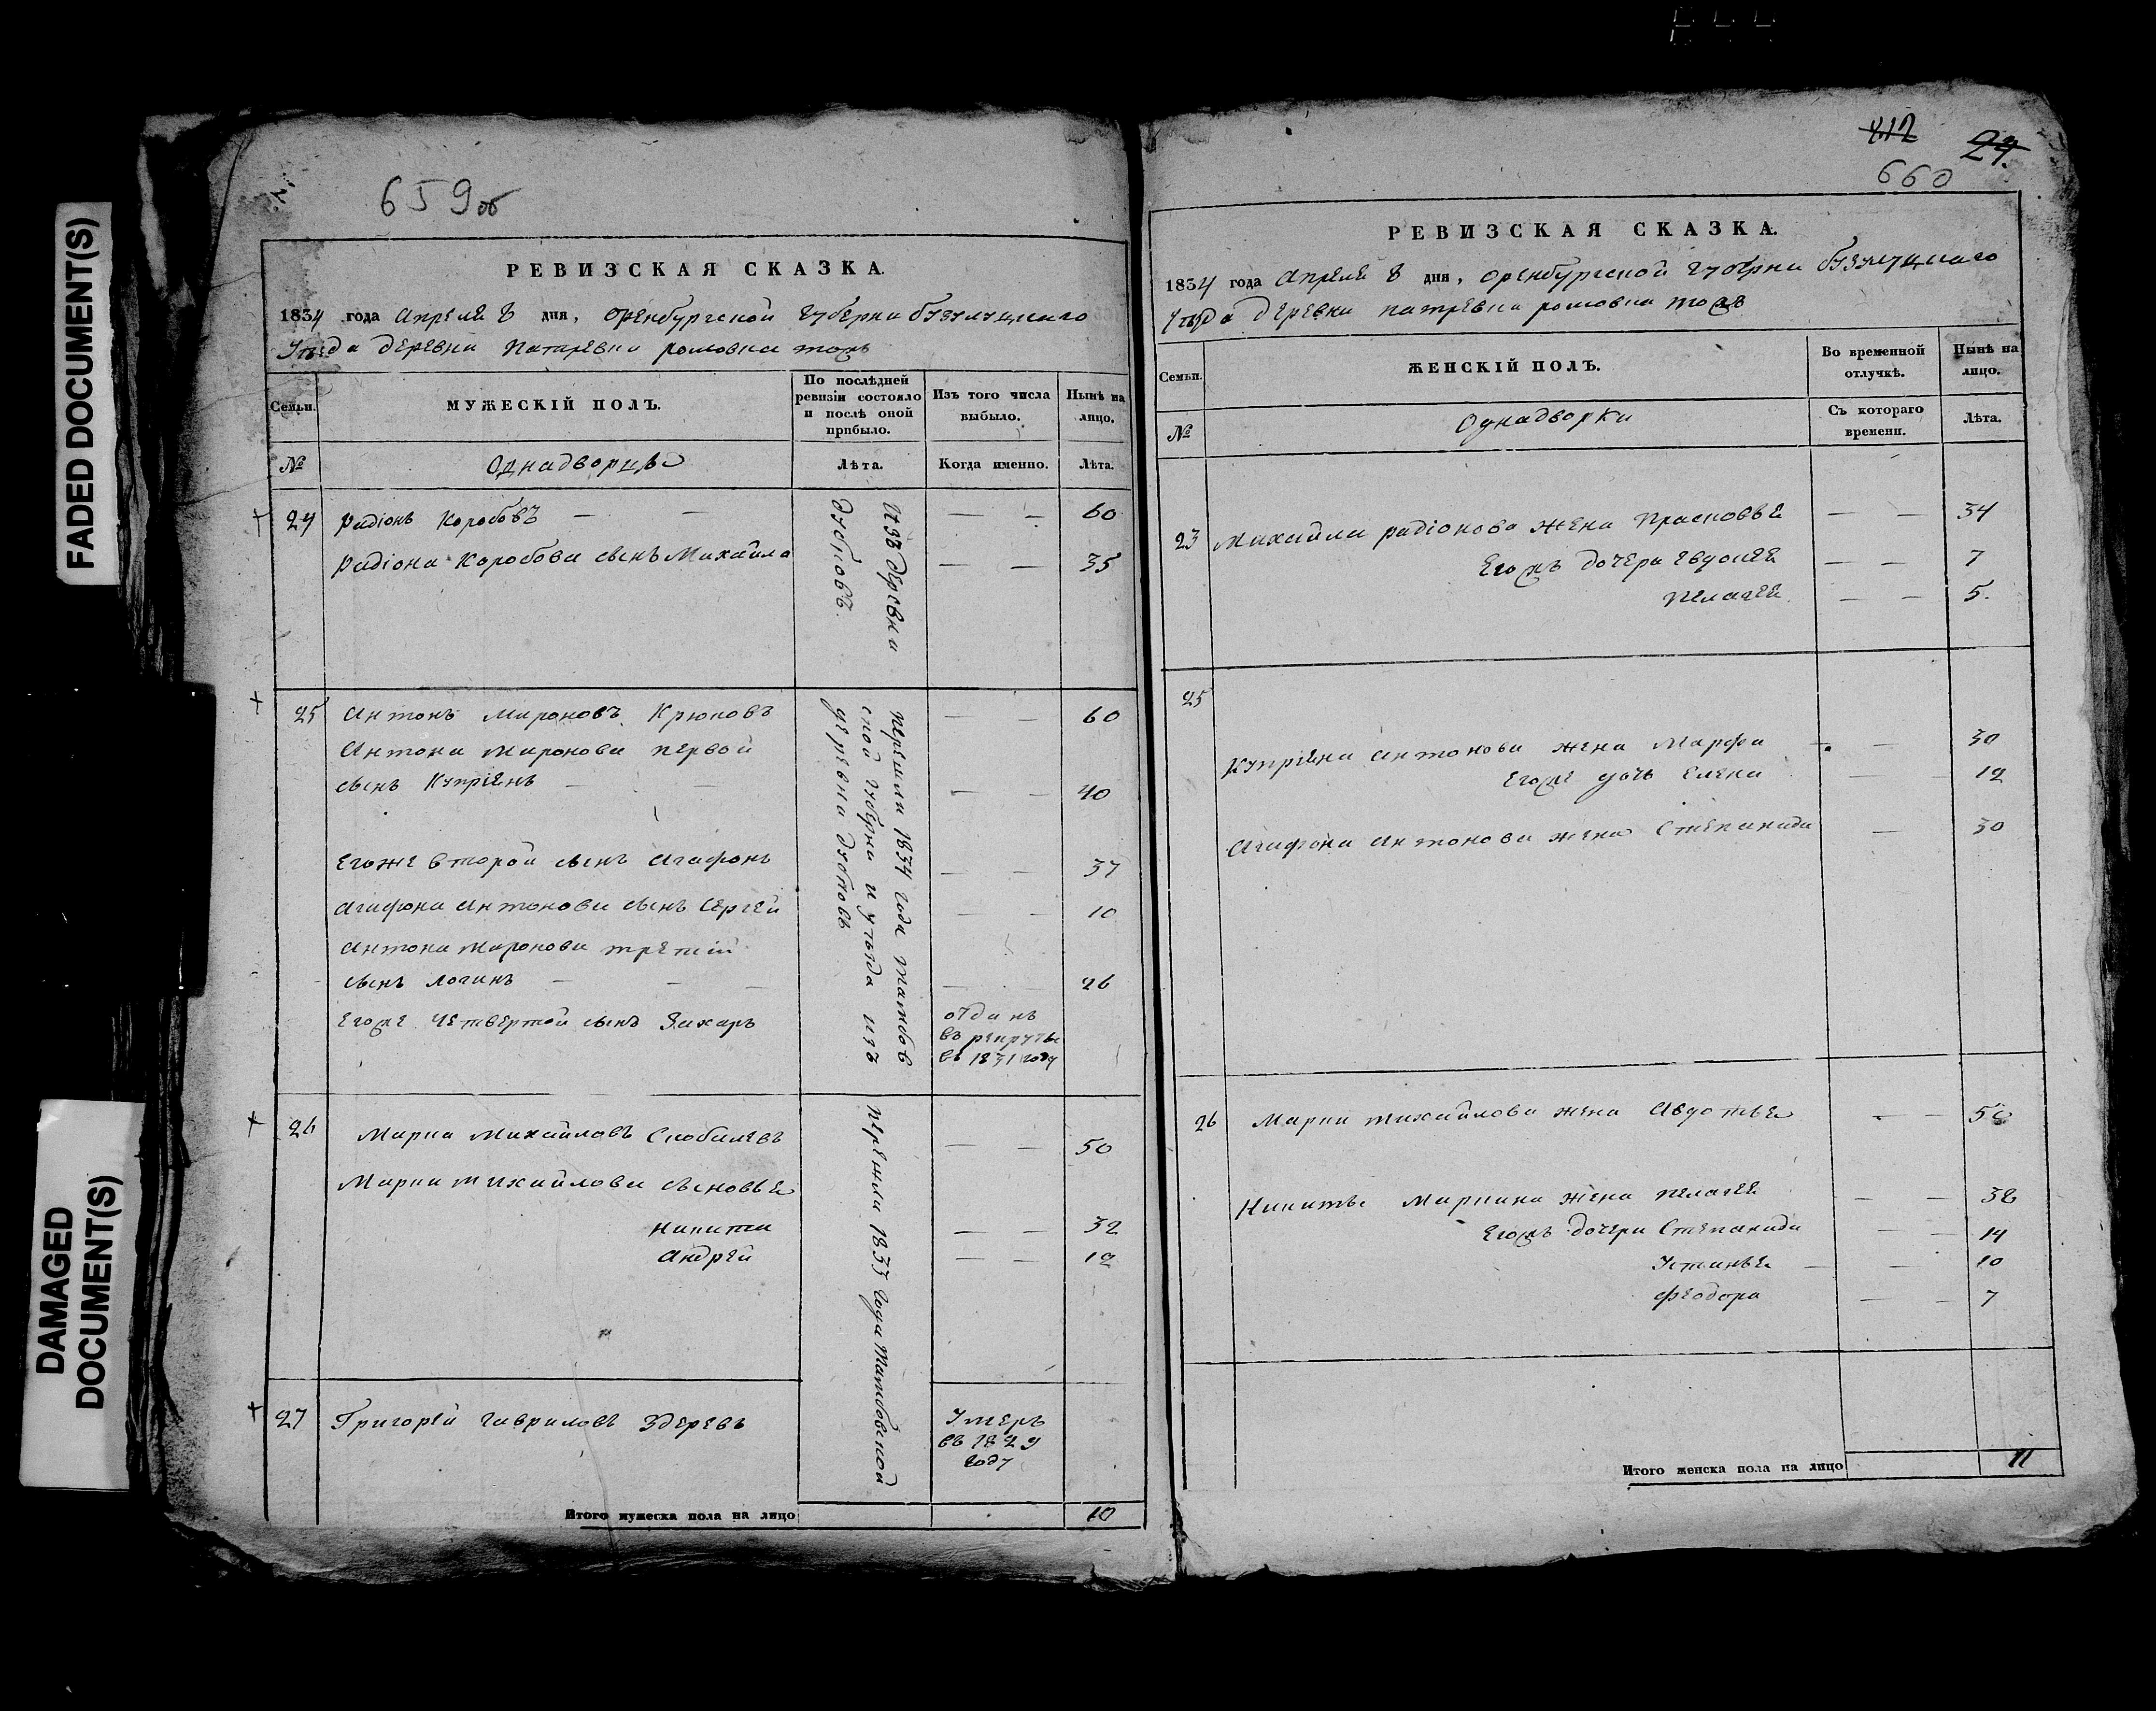 FADED DOCUMENT(S)
DAMAGED
DOCUMENT(S)
659об
РЕВИЗСКАЯ СКАЗКА.
1834 года Апреля 8 дня, Оренбургской губерни бузулуцкаго
Уезда деревни
Семьи.
МУЖЕСКІЙ ПОЛЪ.
По послѣдней
ревизіи состояло
и послѣ оной
прибыло.
Изъ того числа
выбыло.
Нынѣ на
лицо.
№
Однадворцы
Лѣта.
Когда именно.
Лѣта.
24 Радіонъ Коробовъ — — — — 60
Радіона Коробова сынъ Михайла — — 35
Изъ деревни
25 Антонъ Мироновъ Крюковъ — — 60
Антона Миронова первой
сынъ Купріянъ — — — — 40
Егоже второй сынъ Агафонъ — — 37
Агафона Антонова сынъ Сергей — — 10
Антона Миронова третій
сынъ Логинъ — — — — — 26
Егоже четвертой сынъ Захаръ
отданъ
въ рекруты
въ 1831 году
перешли 1834 года тамбов
ской губерни и уезда изъ
деревни
26 Марка Михайловъ Скобилевъ — — 50
Марка Михайлова сыновья
Никита — — 32
Андрей — — 12
перешли 1833 года тамбовской
27 Григорей Гавриловъ
Умеръ
въ 1829
году
Итого мужеска пола на лицо 10
412 24.
660
РЕВИЗСКАЯ СКАЗКА.
1834 года Апреля 8 дня, Оренбургской губерни бузулуцкаго
Уезда деревни
Семьи.
ЖЕНСКІЙ ПОЛЪ.
Во временной
отлучкѣ.
Нынѣ на
лицо.
№
Однадворки
Съ котораго
времени.
Лѣта.
23 Михайлы радіонова жена Прасковья — — 34
Егожъ дочери Евдокея — — 7
Пелагея — — 5.
25
Купріяна Антонова жена Марфа — — 30
Егоже дочь Елена — — 12
Агафона Антонова жена Степанида — 30
26 Марки Михайлова жена Авдотья — — 50
Никиты Маркина жена Пелагея — — 32
Егожъ дочери Степанида — — 14
Устинья — — — 10
Феодора — — 7
Итого женска пола на лицо 11